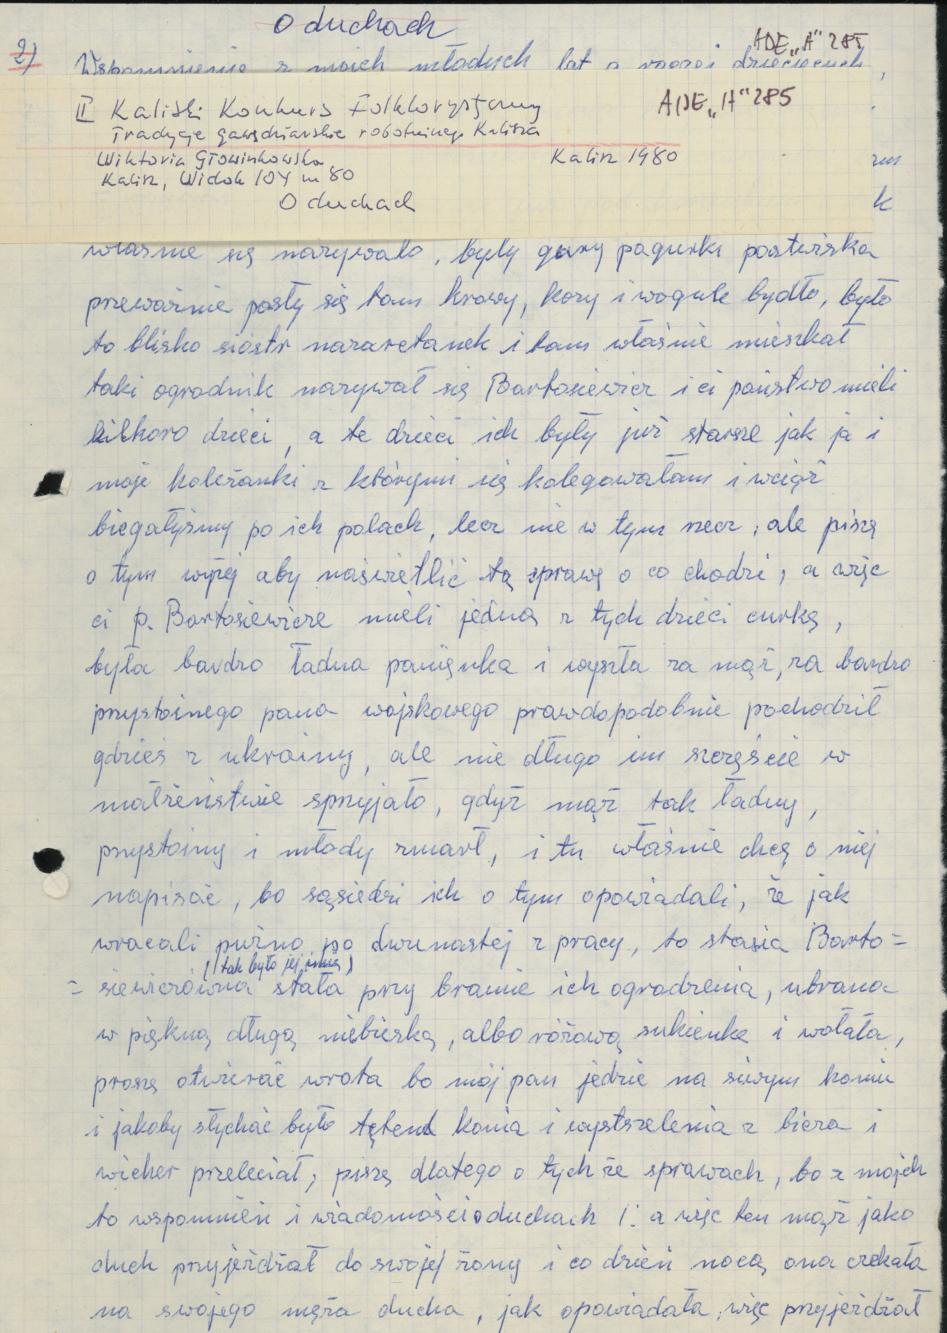 O duchach
2)
ADE „A" 285
Wspomnienie z moich młodych lat a raczej dziecięcych,
II Kaliski Konkurs Folklorystyczny
ADE „A" 285
Tradycje gawędziarskie robotniczego Kalisza
Wiktoria Głowinkowska
Kalisz 1980
Kalisz, Widok 104 m 80
O duchach
własnie się nazywało, były gury pagurki pastwiska
przeważnie pasły się tam krowy, kozy i wogule bydło, było
to blisko siostr nazaretanek i tam właśnie mieszkał
taki ogrodnik nazywał się Bartosiewicz i ci państwo mieli
kilkoro dzieci, a te dzieci ich były już starsze jak ja i
moje koleżanki z którymi się kolegowałam i wciąż
biegałyśmy po ich polach, lecz nie w tym rzecz, ale piszę
o tym wyżej aby naświetlić tą sprawę o co chodzi, a więc
ci p. Bartosiewicze mieli jedną z tych dzieci curkę,
była bardzo ładna panięnka i wyszła za mąż, za bardzo
przystoinego pana wojskowego prawdopodobnie pochodził
gdzieś z ukrainy, ale nie długo im szczęście w
małżeństwie sprzyjało, gdyż mąż tak ładny,
przystoiny i młody zmarł, i tu właśnie chcę o niej
napisać, bo sąsiedzi ich o tym opowiadali, że jak
wracali puźno po dwunastej z pracy, to stasia Barto=
(tak było jej imię)
= siewiczówna stała przy bramie ich ogrodzenia, ubrana
w piękną długą niebieską, albo różową sukienkę i wołała,
proszę otwierać wrota bo mój pan jedzie na siwym koniu
i jakoby słychać było tętend konia i wystrzelenia z bicza i
wicher przeleciał, piszę dlatego o tych że sprawach, bo z mojch
to wspomnień i wiadomości o duchach /: a więc ten mąż jako
duch przyjeżdżał do swojej żony i co dzień nocą ona czekała
na swojego męża ducha, jak opowiadała, więc przyjeżdżał